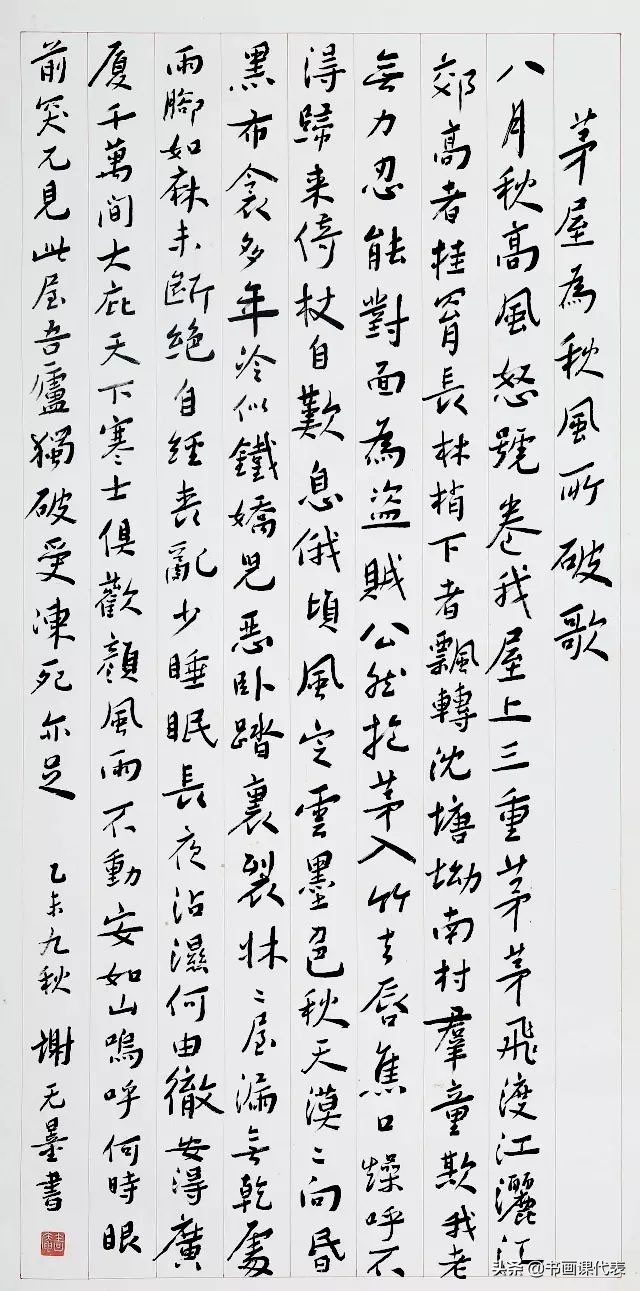 茅屋為秋風所破歌
八月秋高風怒號卷我屋上三重茅茅飛渡江灑江
郊高者挂罥長林梢下者飄轉沈塘坳南村羣童欺我老
無力忍能對面為盜賊公然抱茅入竹去唇焦口燥呼不
得歸来倚杖自歎息俄頃風定雲墨色秋天漠〻向昏
黑布衾多年冷似鐵嬌兒惡卧踏裏裂牀〻屋漏無乾處
雨腳如麻未斷絕自經喪亂少睡眠長夜沾濕何由徹安得廣
厦千萬間大庇天下寒士俱歡顏風雨不動安如山嗚呼何時眼
前突兀見此屋吾廬獨破受凍死亦足
乙未九秋 謝无墨書
头条 @书画课代表